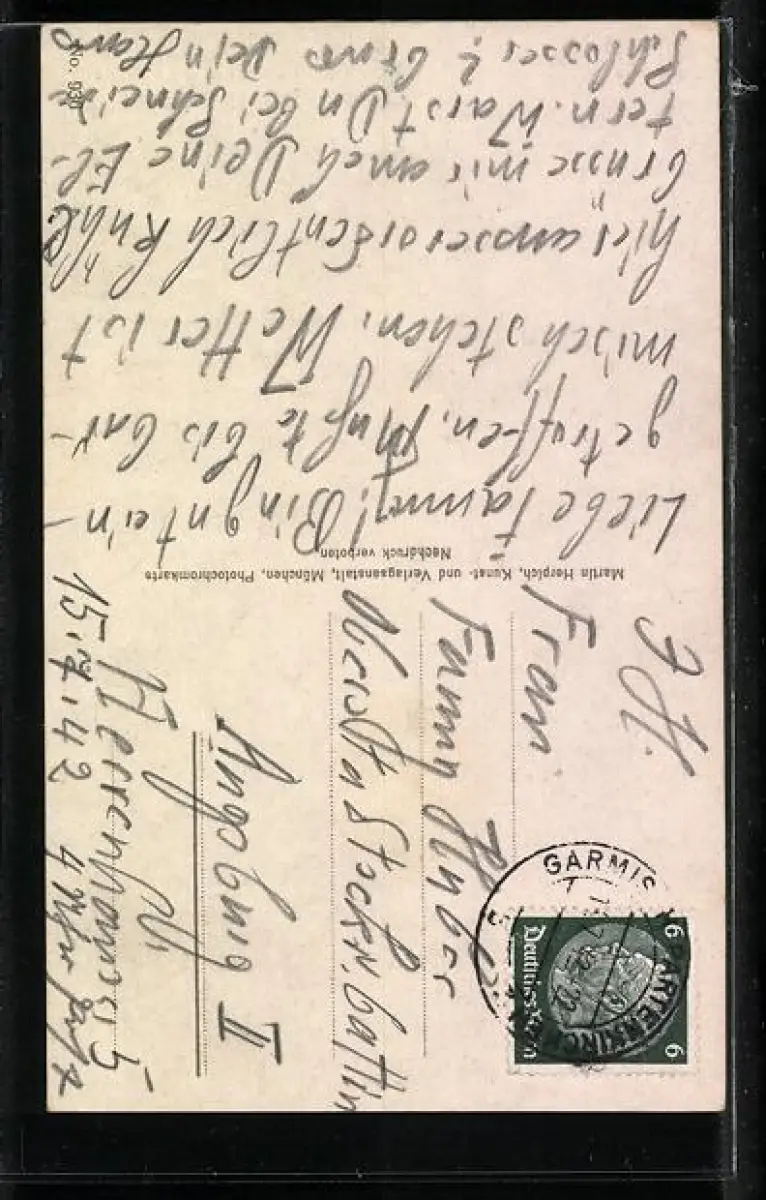 Liebe Fanny! Bin gut ein-
getroffen. Mußte bis Gar-
misch stehen. Wetter ist
hier ausserordentlich kühl
Grüsse mir auch Deine El-
tern. Warst Du bei Schneider
Schlosser? Gruß Dein Hans
No. 930
Martin Herpich, Kunst- und Verlagsanstalt, München, Photochromkarte
Nachdruck verboten
Frau
Fanny Huber
Augsburg II
Herrenhäuser 5
15.7.42 4 Uhr
GARMISCH-PARTENKIRCHEN
Deutsches Reich
6
6